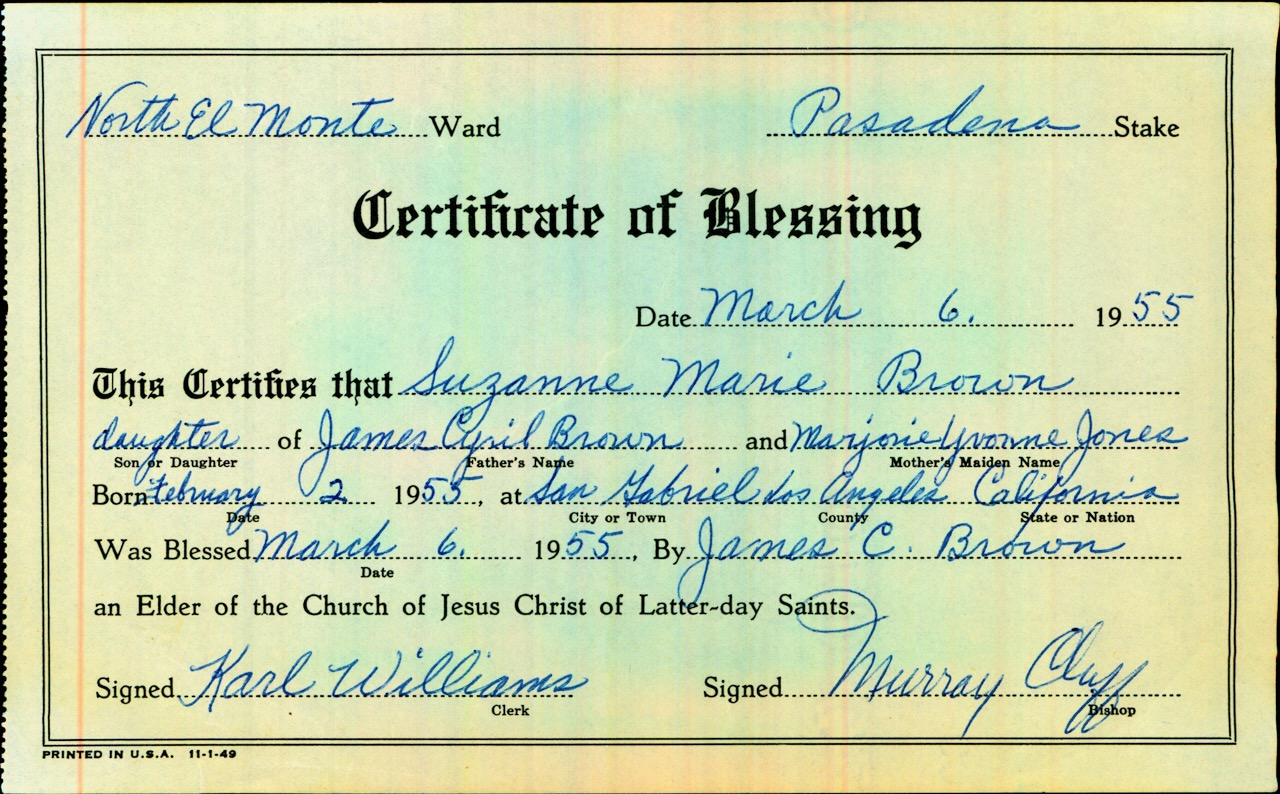 North El Monte Ward Pasadena Stake
Certificate of Blessing
Date March 6. 1955
This Certifies that Suzanne Marie Brown
daughter of James Cyril Brown and Marjorie Yvonne Jones
Son or Daughter Father's Name Mother's Maiden Name
Born February 2 1955, at San Gabriel Los Angeles California
Date City or Town County State or Nation
Was Blessed March 6. 1955, By James C. Brown
Date
an Elder of the Church of Jesus Christ of Latter-day Saints.
Signed Karl Williams Signed Murray Cluff
Clerk Bishop
PRINTED IN U.S.A. 11-1-49